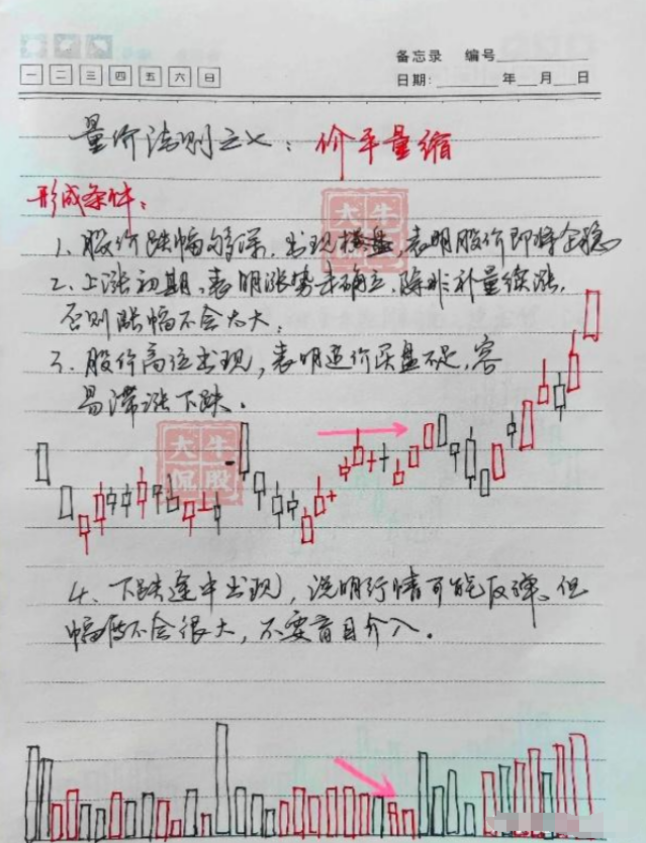 备忘录 编号
一 二 三 四 五 六 日
日期: 年 月 日
量价法则之乂:价平量缩
形成条件:
大牛
侃股
1、股价跌幅够深,出现横盘,表明股价即将企稳
2、上涨初期,表明涨势未确立,除非补量续涨,
否则涨幅不会太大;
3、股价高位出现,表明追价买盘不足,容
易滞涨下跌.
大牛
侃股
4、下跌途中出现,说明行情可能反弹,但
幅度不会很大,不要盲目介入.